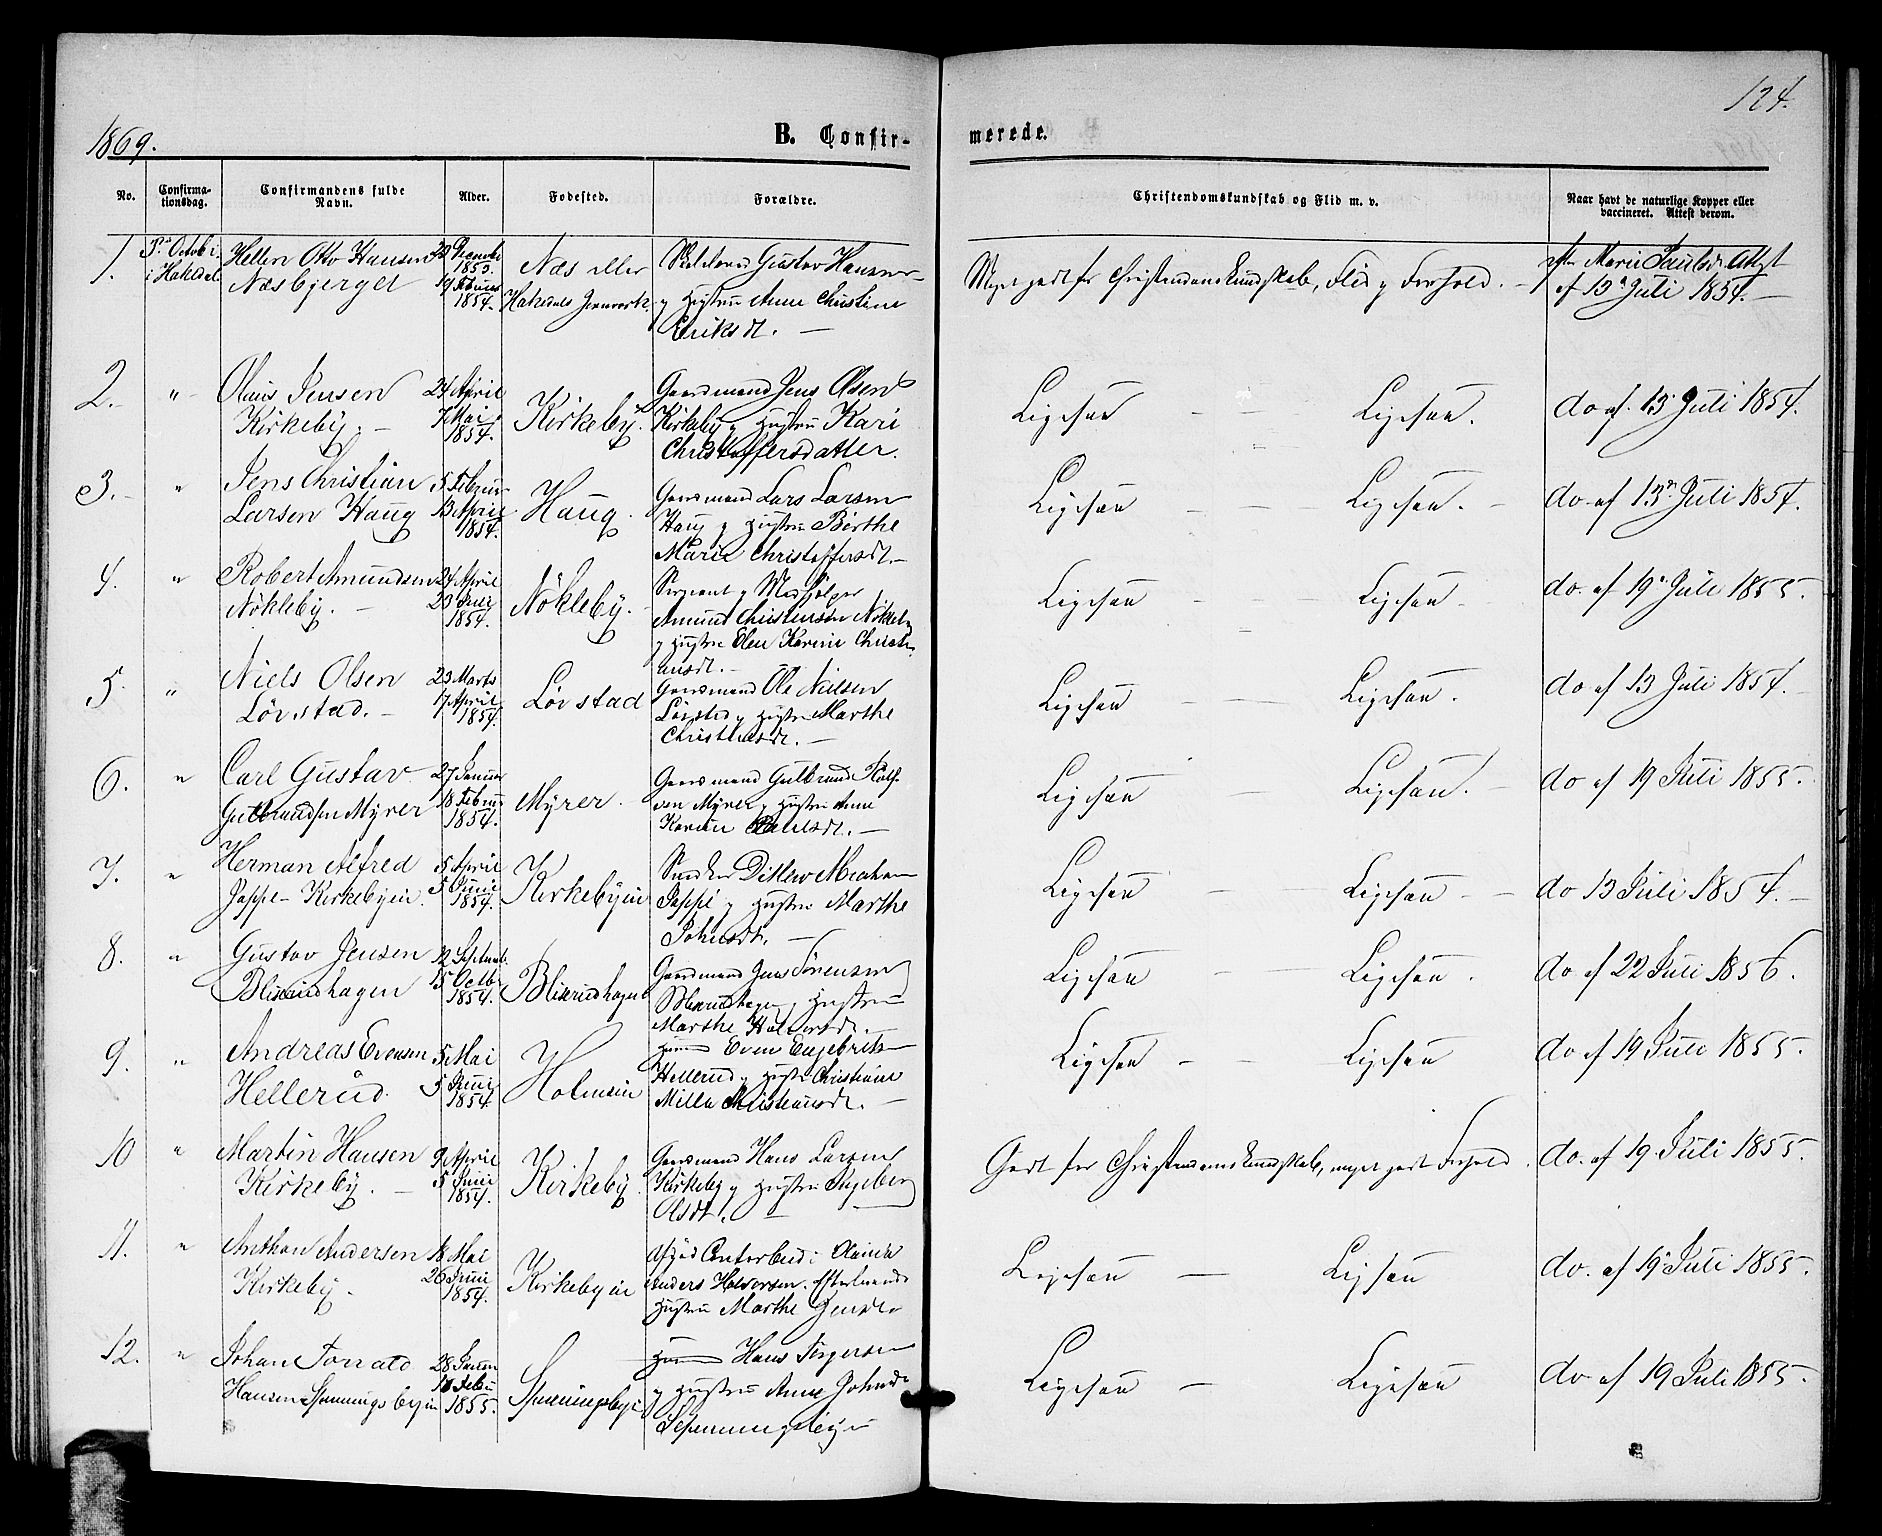 124.
1869.
B. Confir-
merede.
No.
Confirma-
tionsdag.
Confirmandens fulde
Navn.
Alder.
Fødested.
Forældre.
Christendomskundskab og Flid m. v.
Naar havt de naturlige Kopper eller
vaccineret. Attest derom.
1. 3die Octob. i Hakedal
Hellen Otto Hansen
Næsbjerget
1853
19 Februar
1854.
Næs eller
Hakedals Jernværk.
Gustav Hansen
og Hustru Anne Christine
Eriksdt. —
Meget godt for Christendomskundskab, Flid og Forhold. —
Marie Paulsdr. Attest
af 13de Juli 1854. —
2. "
Olaus Jensen
Kirkeby. —
24 April
7 Mai
1854.
Kirkeby.
Gaardmand Jens Olsen
Kirkeby og Hustru Kari
Christoffersdatter.
Ligesaa — — Ligesaa.
do af. 13 Juli 1854.
3. "
Jens Christian
Larsen Haug
5 Februar
13 April
1854.
Haug.
Gaardmand Lars Larsen
Haug og Hustru Birthe
Marie Christoffersdt. —
Ligesaa — — Ligesaa. —
do af 13de Juli 1854.
4. "
Robert Amundsen
Nökleby. —
24 April
23 Juni
1854.
Nökleby.
Sergeant og
Amund Christensen Nökleby
og Hustru Elen Karine Christi-
ansdt. —
Ligesaa — — Ligesaa —
do. af 19de Juli 1855.
5. "
Niels Olsen
Lövstad. —
23 Marts
17 April
1854.
Lövstad
Gaardmand Ole Nielsen
Lövstad og Hustru Marthe
Christensdt. —
Ligesaa — — Ligesaa.
do af 13 Juli 1854. —
6. "
Carl Gustav
Gulbrandsen Myrer
27 Januar
18 Februar
1854.
Myrer.
Gaardmand Gulbrand
Myrer og Hustru Anne
Karine Paulsdt. —
Ligesaa — Ligesaa. —
do af 19 Juli 1855.
7. "
Herman Alfred
Jappe - Kirkebyeie.
5 April
5 Juni
1854.
Kirkebyeie
Ditlew Abraham
Jappe og Hustru Marthe
Johnsdt. —
Ligesaa — Ligesaa —
do 13 Juli 1854. —
8. "
Gustav Jensen
Bliksrudhagen
12 Septemb.
15 Octbr.
1854.
Bliksrudhagen
Gaardmand Jens Sörensen
Bliksrudhagen og Hustru
Marthe Halvorsdt. —
Ligesaa — Ligesaa.
do af 22 Juli 1856.
9. "
Andreas Evensen
Hellerud.
5 Mai
5 Juni
1854.
Holmeie
Huusm Even Engebretsen
Hellerud og Hustru Christiane
Milla Christiansdt. —
Ligesaa — Ligesaa
do af 19 Juli 1855.
10 "
Martin Hansen
Kirkeby. —
9 April
5 Juni
1854.
Kirkeby.
Gaardmand Hans Larsen
Kirkeby og Hustru Ingeborg
Olsdt. —
Godt for Christendomskundskab, meget godt Forhold.
do. af 19 Juli 1855.
11. "
Anthon Andersen
Kirkeby.
18 Mai
26 Juni
1854.
Kirkebyeie
Afgaaet Contorbud
Anders Halvorsen. Efterlevende
Hustru Marthe Jensdr.
Ligesaa — Ligesaa
do. af 19de Juli 1855.
12. "
Johan Torvald
Hansen Spenningsbyeie
28 Januar
18 Febr
1855.
Spenningsbyeie
Huusm Hans Jörgensen
og Hustru Anne Johnsdr.
Spenningsbyeie
Ligesaa — Ligesaa
do af 19 Juli 1855.